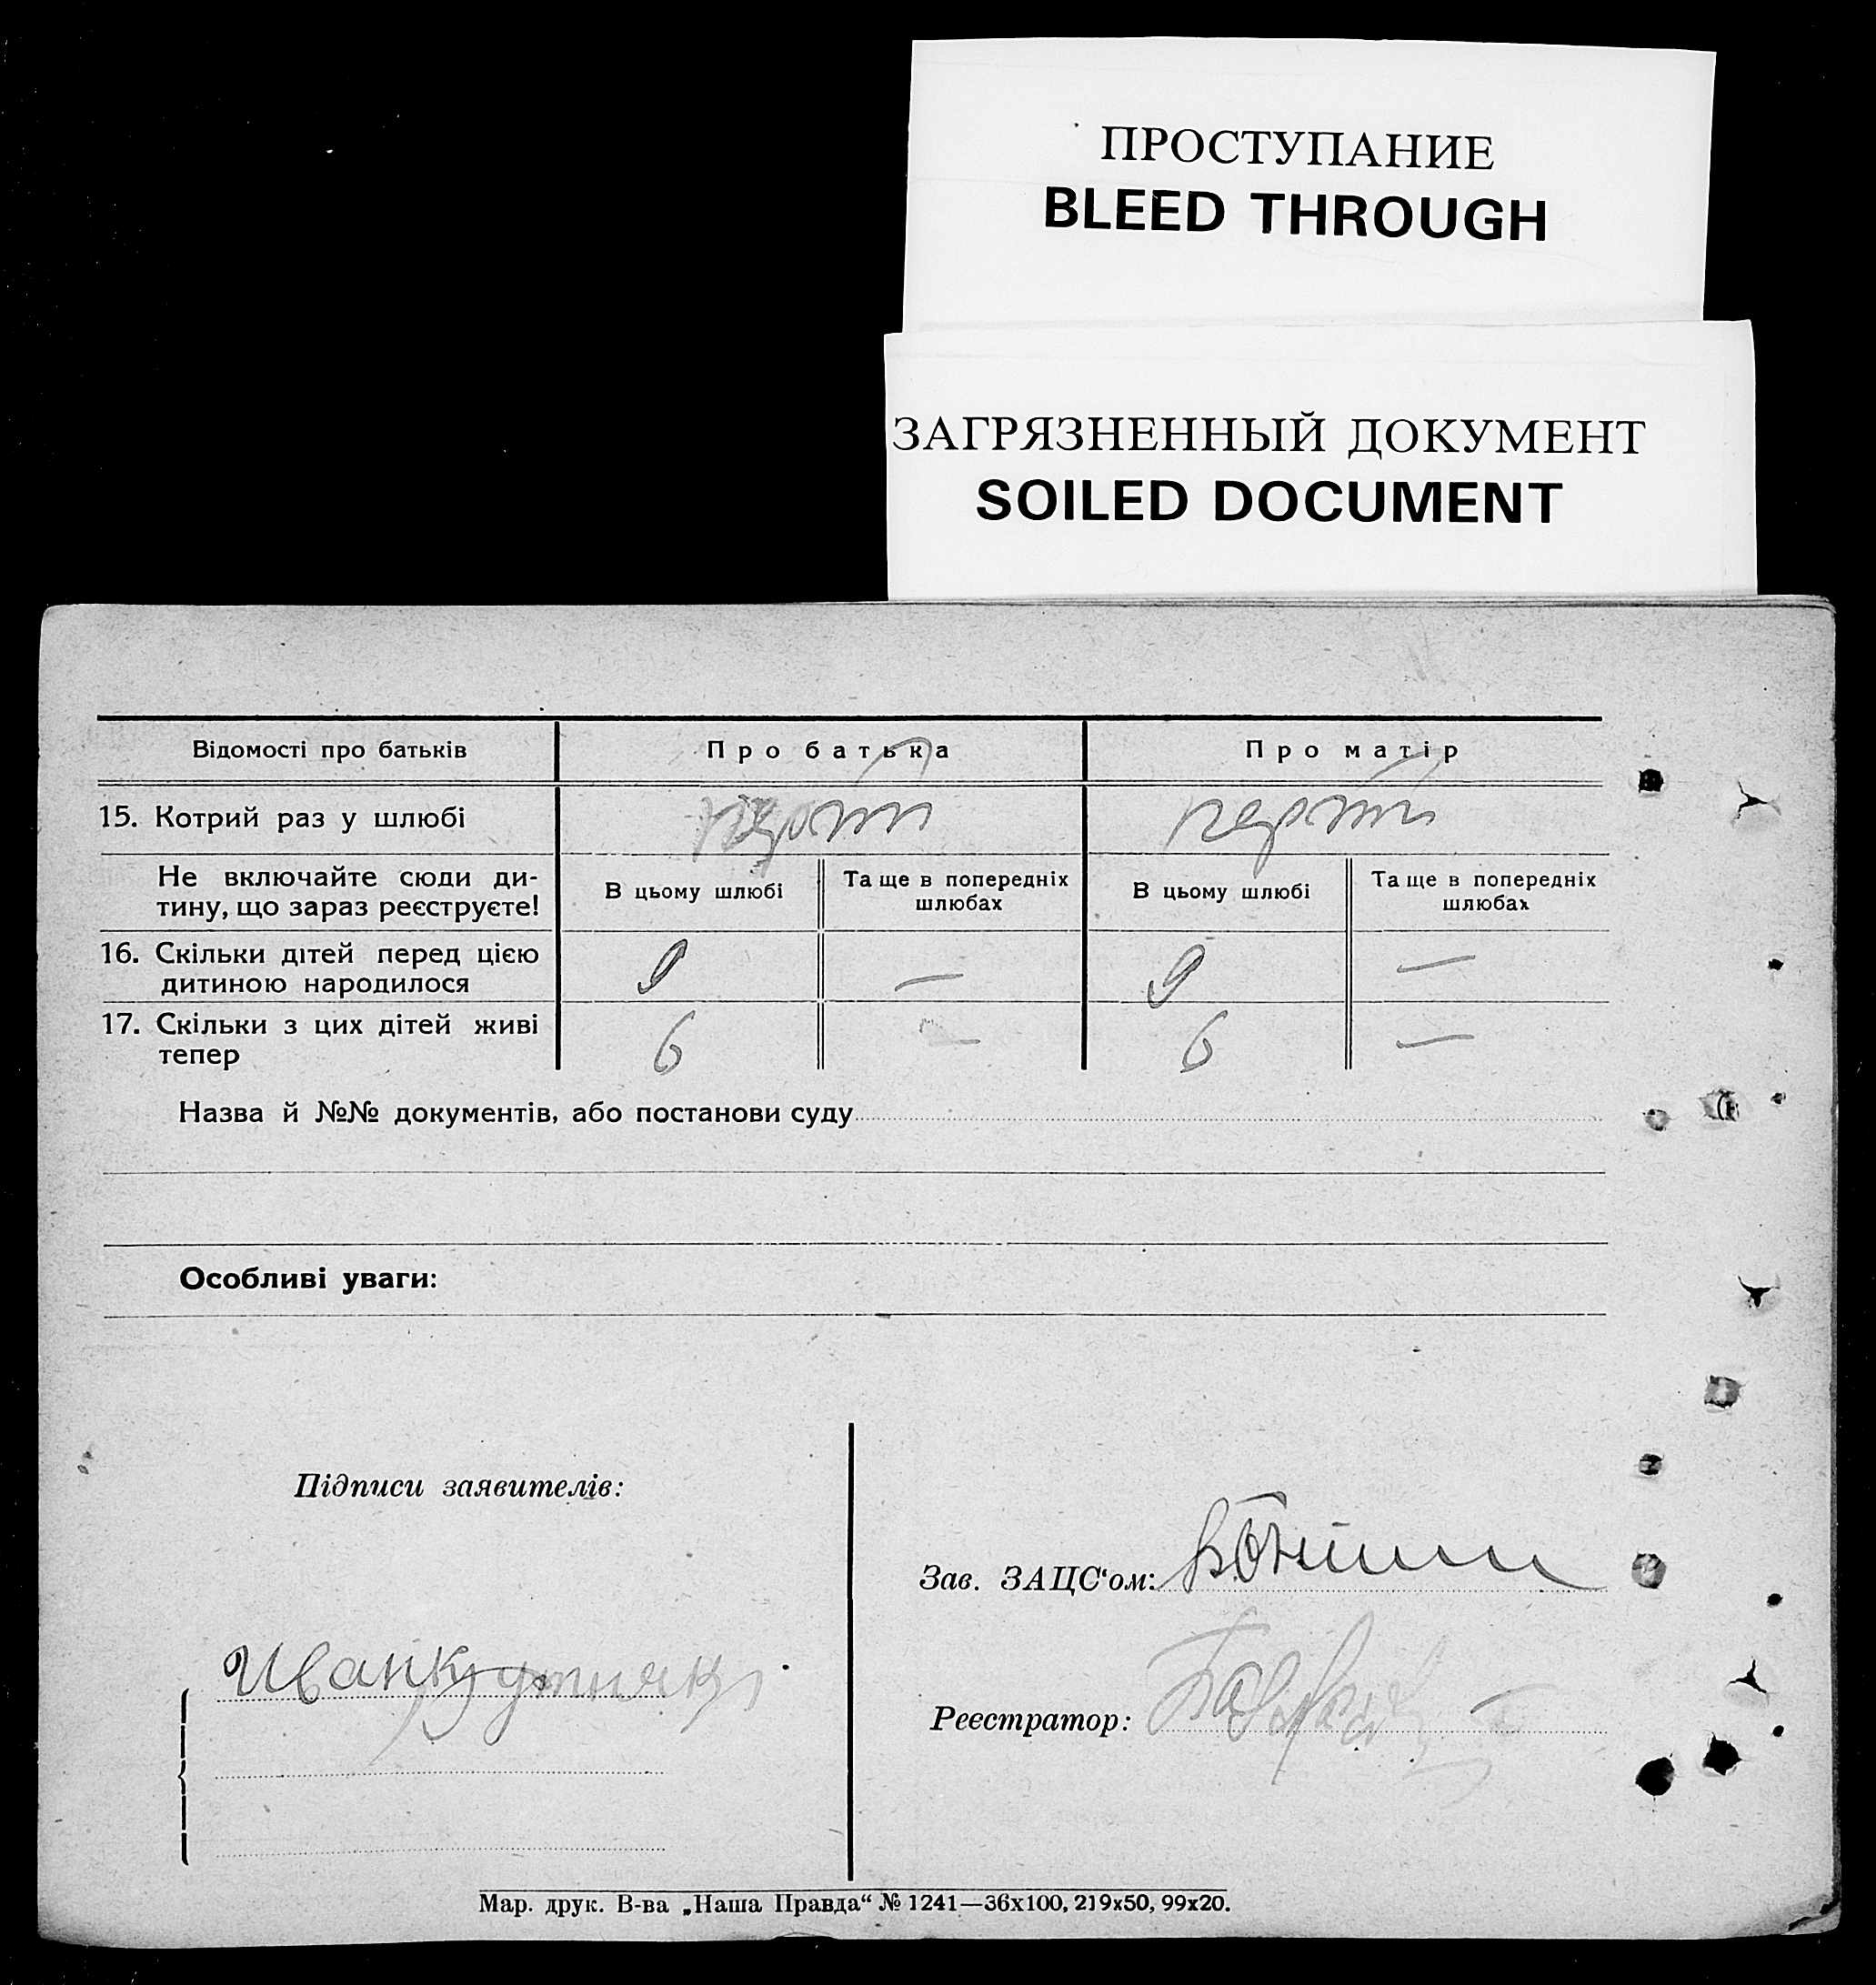 ПРОСТУПАНИЕ
BLEED THROUGH
ЗАГРЯЗНЕННЫЙ ДОКУМЕНТ
SOILED DOCUMENT
Відомості про батьків Про батька Про матір
15. Котрий раз у шлюбі
Не включайте сюди ди-
тину, що зараз реєструєте!
В цьому шлюбі
Та ще в попередніх
шлюбах
В цьому шлюбі
Та ще в попередніх
шлюбах
16. Скільки дітей перед цією
дитиною народилося
9 — 9 —
17. Скільки з цих дітей живі
тепер
6 — 6 —
Назва й №№ документів, або постанови суду
Особливі уваги:
Підписи заявителів:
Иван
Зав. ЗАЦС‘ом:
Реєстратор:
Мар. друк. В-ва „Наша Правда“ № 1241—36х100, 219х50, 99х20.